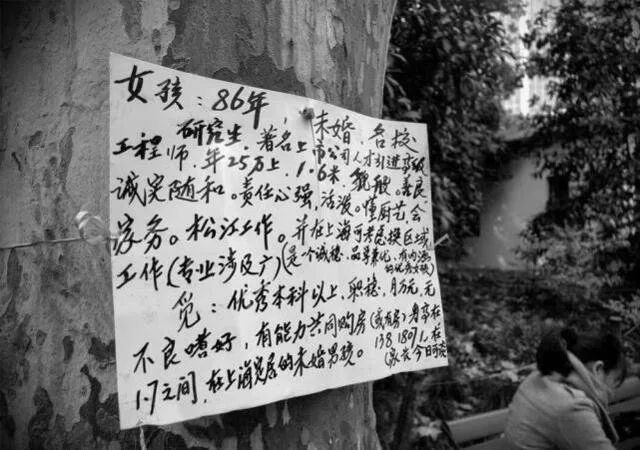 女孩：86年，未婚，名校
研究生，著名上市公司人才引进高级
工程师，年25万上，1.6米，貌般。善良
诚实随和。责任心强，活泼。懂厨艺会
家务。松江工作。并在上海可考虑换区域
工作(专业涉及广)(是一个诚稳、品学兼优、有内涵
的优秀女孩)
觅：优秀本科以上，职稳，月万元，无
不良嗜好，有能力共同购房(或有房)身高在
1.7之间，在上海定居的未婚男孩。